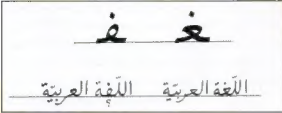 ـغـ ـفـ
اللّغة العربيّة اللّفة العربيّة